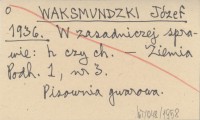 o WAKSMUNDZKI Józef
1936. W zasadniczej spra-
wie: h czy ch. — Ziemia
Podh. 1, nr 3.
Pisownia gwarowa.